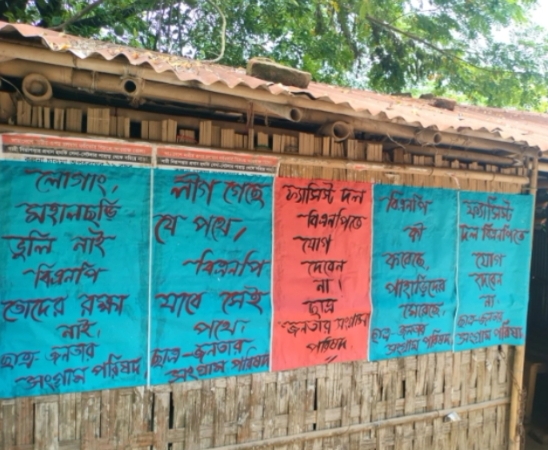 লোগাং,
মহালছড়ি
ভুলি নাই
বিএনপি
তোদের রক্ষা
নাই।
ছাত্র-জনতার
সংগ্রাম পরিষদ
লীগ গেছে
যে পথে,
বিএনপি
যাবে সেই
পথে।
ছাত্র-জনতার
সংগ্রাম পরিষদ
ফ্যাসিস্ট দল
বিএনপিতে
যোগ
দেবেন
না।
ছাত্র
জনতার সংগ্রাম
পরিষদ
বিএনপি
কী
করেছে,
পাহাড়িদের
মেরেছে,
ছাত্র-জনতার
সংগ্রাম পরিষদ
ফ্যাসিস্ট
দল বিএনপিতে
যোগ
দেবেন
না
ছাত্র-জনতার
সংগ্রাম পরিষদ